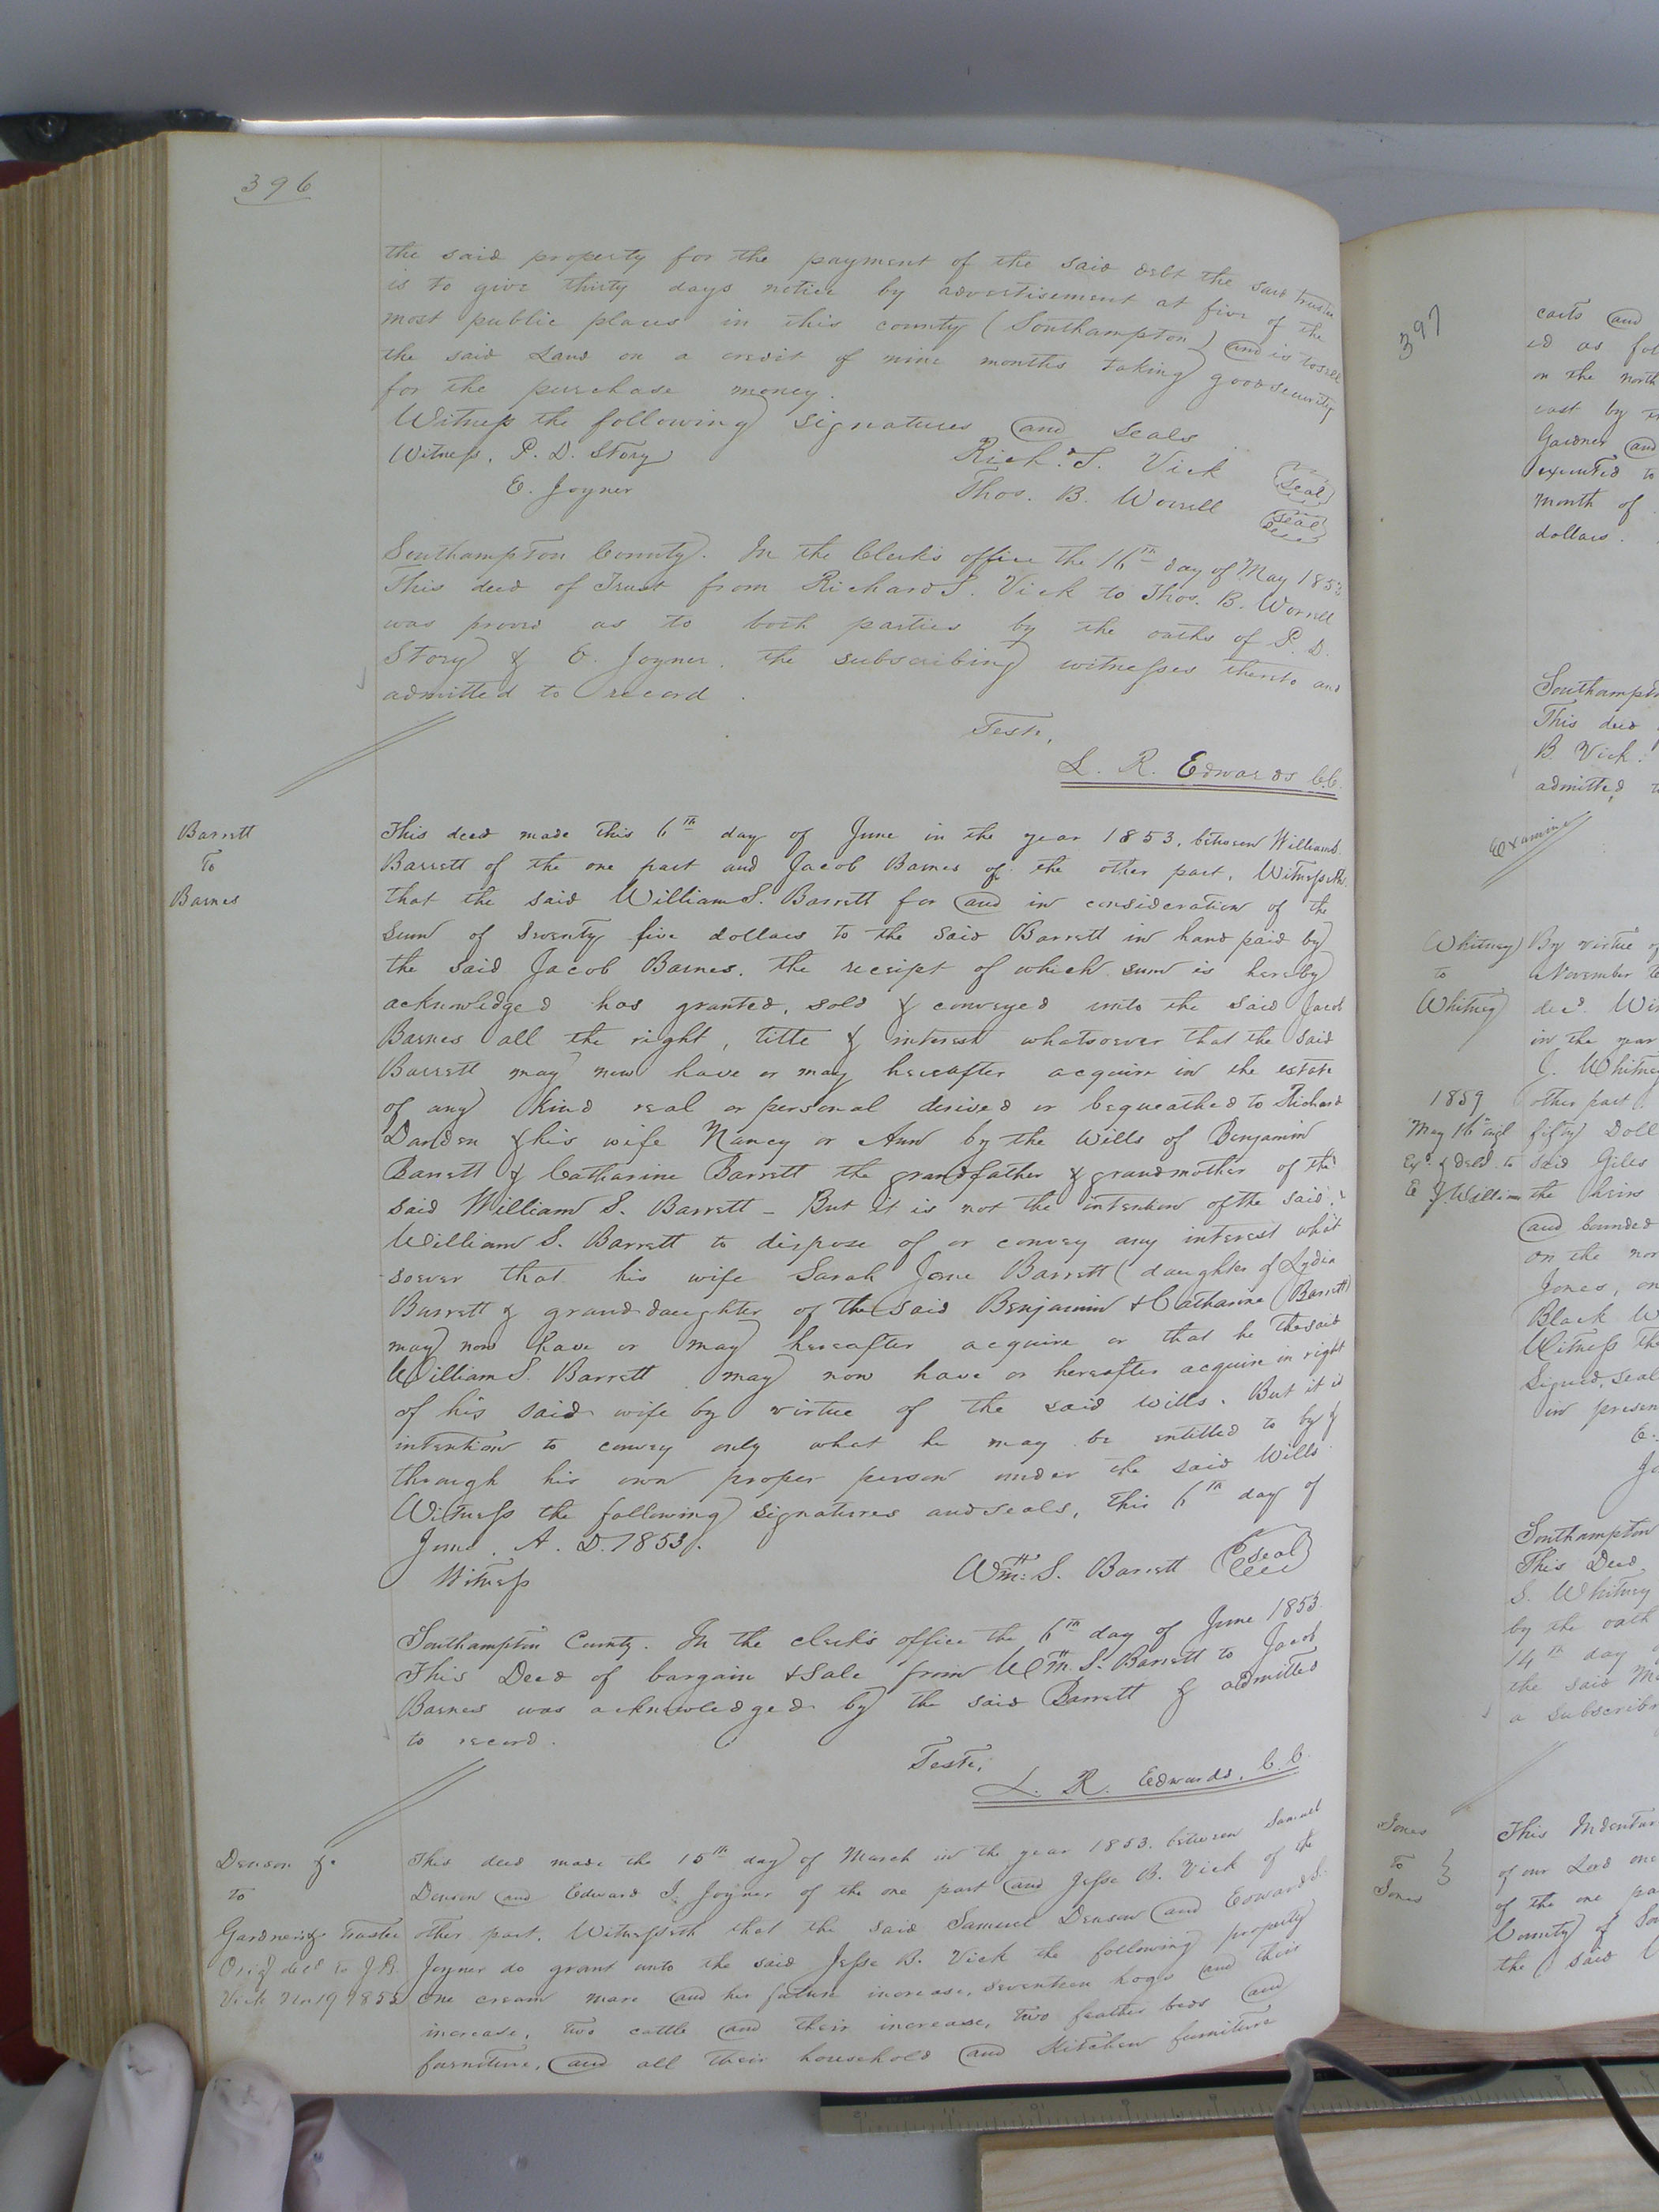 396
the said property for the payment of the said debt the said trustee
is to give thirty days notice by advertisement at five of the
most public places in this county (Southampton) and is to sell
the said Land on a credit of nine months taking good security
for the purchase money.
Witness the following signatures and seals
Witness, P. D. Story
Rich. S. Vick (seal)
E. Joyner
Thos. B. Worrell (seal)
Southampton County. In the Clerk's office the 16th day of May 1853
This deed of Trust from Richard S. Vick to Thos. B. Worrell
was proved as to both parties by the oaths of P. D.
Story & E. Joyner. the subscribing witnesses thereto and
admitted to record.
Teste,
L. R. Edwards C.C.
Barrett
To
Barnes
This deed made this 6th day of June in the year 1853, between William S.
Barrett of the one part and Jacob Barnes of the other part, Witnesseth
that the said William S. Barrett for and in consideration of the
sum of Seventy five dollars to the said Barrett in hand paid by
the said Jacob Barnes, the receipt of which sum is hereby
acknowledged has granted, sold & conveyed unto the said Jacob
Barnes all the right, title & interest whatsoever that the said
Barrett may now have or may hereafter acquire in the estate
of any kind real or personal devised or bequeathed to Richard
Darden & his wife Nancy or Ann by the Wills of Benjamin
Barrett & Catharine Barrett the grandfather & grandmother of the
said William S. Barrett - But it is not the intention of the said
William S. Barrett to dispose of or convey any interest what
soever that his wife Sarah Jane Barrett (daughter of Lydia
Barrett & granddaughter of the said Benjamin & Catharine Barrett)
may now have or may hereafter acquire or that he the said
William S. Barrett may now have or hereafter acquire in right
of his said wife by virtue of the said wills. But it is
intention to convey only what he may be entitled to by &
through his own proper person under the said Wills
Witness the following signatures and seals, this 6th day of
June. A. D. 1853.
Witness
Wm. S. Barrett (seal)
Southampton County. In the clerk's office the 6th day of June 1853.
This Deed of bargain & Sale from Wm. S. Barrett to Jacob
Barnes was acknowledged by the said Barrett & admitted
to record.
Teste,
L. R. Edwards, C.C.
Denson &c
to
Gardner &c Trustee
Orig deld to J.B.
Vick 1853
This deed made the 15th day of March in the year 1853. between Samuel
Denson and Edward S. Joyner of the one part and Jesse B. Vick of the
other part, Witnesseth that the said Samuel Denson and Edward S.
Joyner do grant unto the said Jesse B. Vick the following property
One cream mare and her future increase, seventeen hogs and their
increase, two cattle and their increase, two feather beds and
furniture, and all their household and Kitchen furniture
397
carts and
ed as fol
on the north
east by
Gardner and
executed to
month of
dollars.
Southampto
This deed
B. Vick
admitted
Examined
Whitney
to
Whitney
1859
By virtue of
November
decd. Wi
in the year
J. Whitney
other part
fifty Doll
said Giles
the heirs
and bounded
on the nor
Jones, on
Black W
Witness the
Signed, seal
in presen
E.
Jo
Southampton
This Deed
S. Whitney
by the oath
14th day
the said
a subscrib
Jones
To
Jones
This Indentur
of our Lord one
of the one pa
County of So
the said